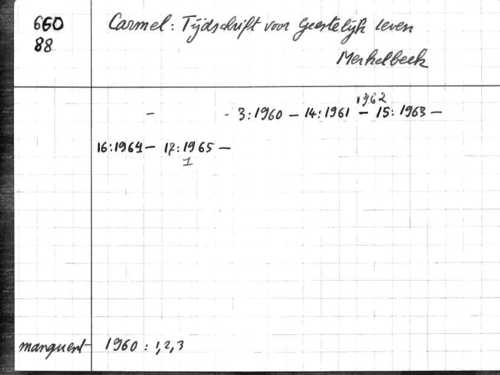 660 Carmel: Tijdschrift voor Geestelijk Leven
88 Merkelbeek
1962
- - 3:1960 - 14:1961 - 15:1963 -
16:1964 - 17:1965 -
1
manquent 1960 : 1,2,3